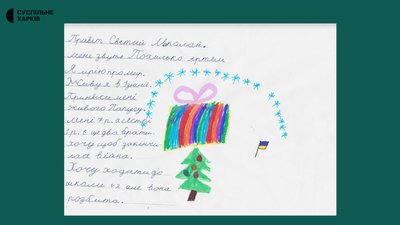 СУСПІЛЬНЕ
ХАРКІВ
Привіт Святий Миколай.
мене звуть Похилько Артем
Я мрію про мир.
Живу я в Ізюмі.
Принеси мені
живого Папугу.
Мені 7 р. а сестрі
1 р. є ще два брати.
хочу щоб закінчи
лася війна.
Хочу ходити до
школи №2 але вона
розбита.